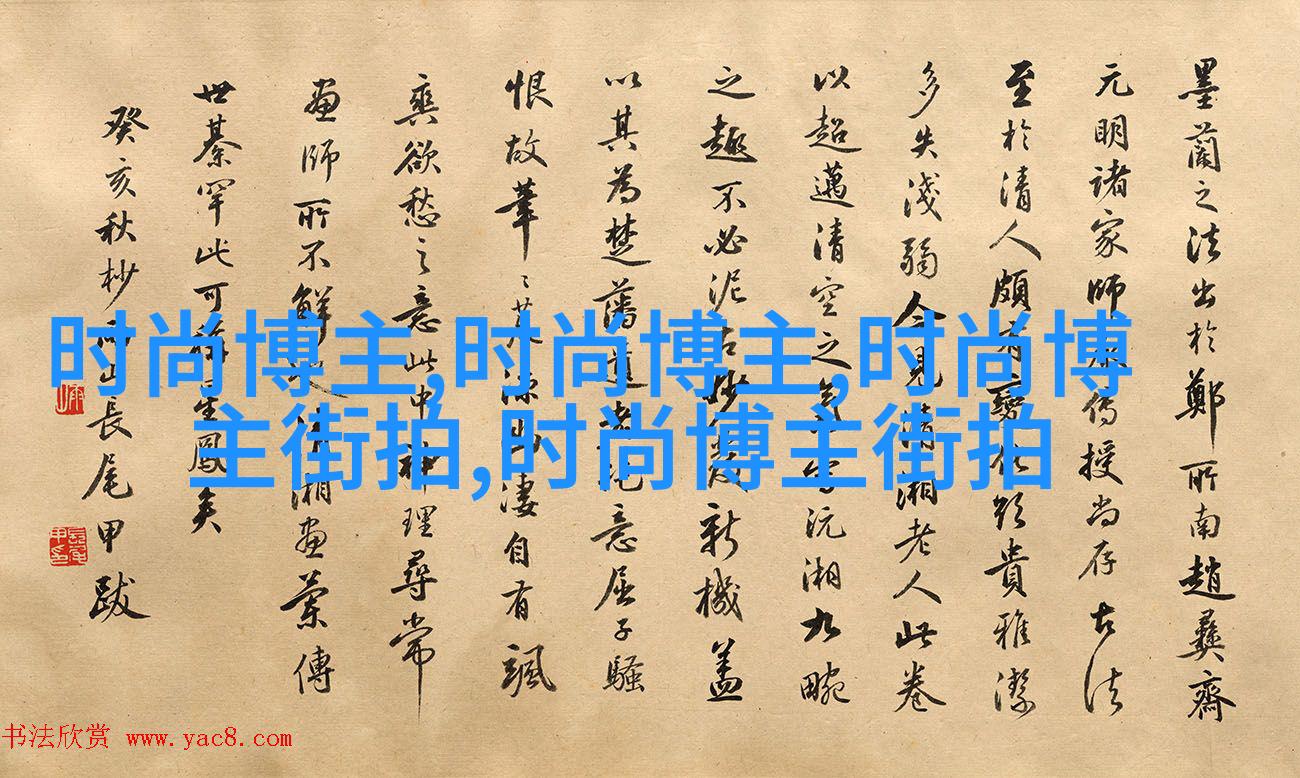 墨蘭之法出於鄭所南趙彝齋
元明諸家師傳授尚存古法
至於清人頗有變化貴雅潔
多失淺弱今見瀟湘老人此卷
以超邁清空之氣寫沅湘九畹
之趣不必泥古妙發新機蓋
以其為楚藩遺老託意屈子騷
恨故淒自有
欲愁之意此中神理尋常
畫師所不湘畫蘭傳
世綦罕此可稱生鳳矣
癸亥秋杪雨山長尾甲跋
时尚博主,时尚博主,时尚博
主街拍,时尚博主街拍
书法欣赏 www.yac8.com